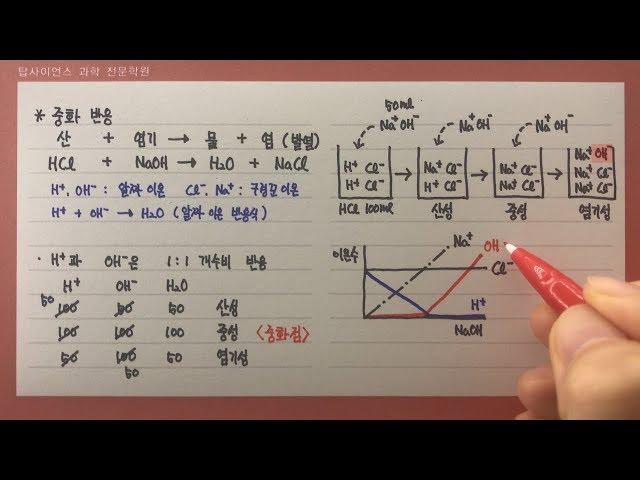 탑사이언스 과학 전문학원
* 중화 반응
산 + 염기 → 물 + 염 (발열)
HCl + NaOH → H₂O + NaCl
H⁺, OH⁻ : 알짜 이온 Cl⁻, Na⁺ : 구경꾼 이온
H⁺ + OH⁻ → H₂O (알짜 이온 반응식)
· H⁺과 OH⁻은 1:1 개수비 반응
H⁺ OH⁻ H₂O
50
100 50 50 산성
100 100 100 중성 <중화점>
50 100 50 염기성
50
50ml
Na⁺OH⁻ Na⁺OH⁻ Na⁺OH⁻
H⁺ Cl⁻
H⁺ Cl⁻
HCl 100ml
→
Na⁺ Cl⁻
H⁺ Cl⁻
산성
→
Na⁺ Cl⁻
Na⁺ Cl⁻
중성
→
Na⁺ OH⁻
Na⁺ Cl⁻
Na⁺ Cl⁻
염기성
이온수
Na⁺
OH
Cl⁻
H⁺
NaOH